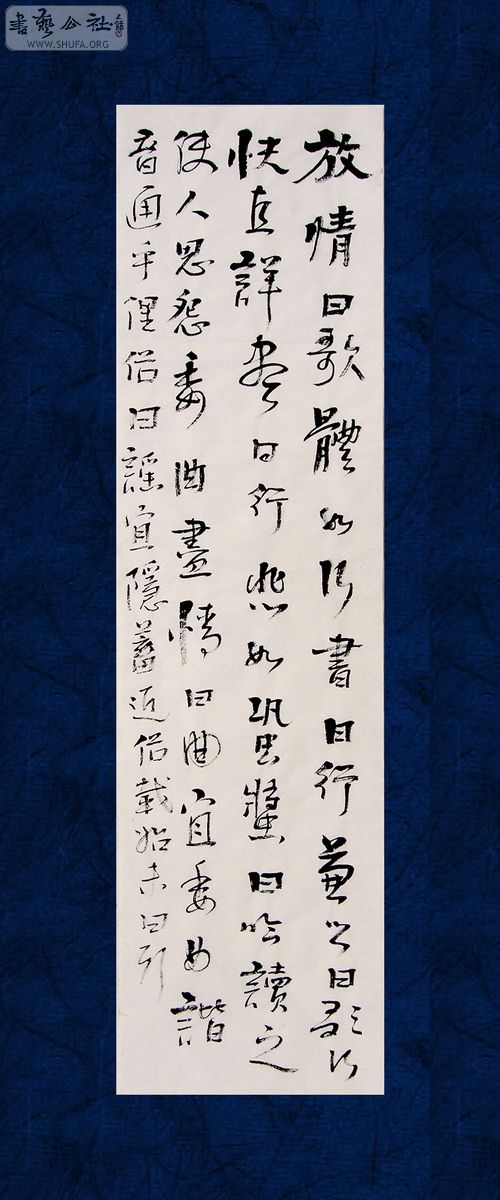 書藝公社
WWW.SHUFA.ORG
放情曰歌體如行書曰行兼之曰歌行
快直詳盡曰行悲如蛩螿曰吟讀之
使人思怨委曲盡情曰曲宜委曲諧
音通乎俚俗曰謠宜隱蓄近俗載始末曰引